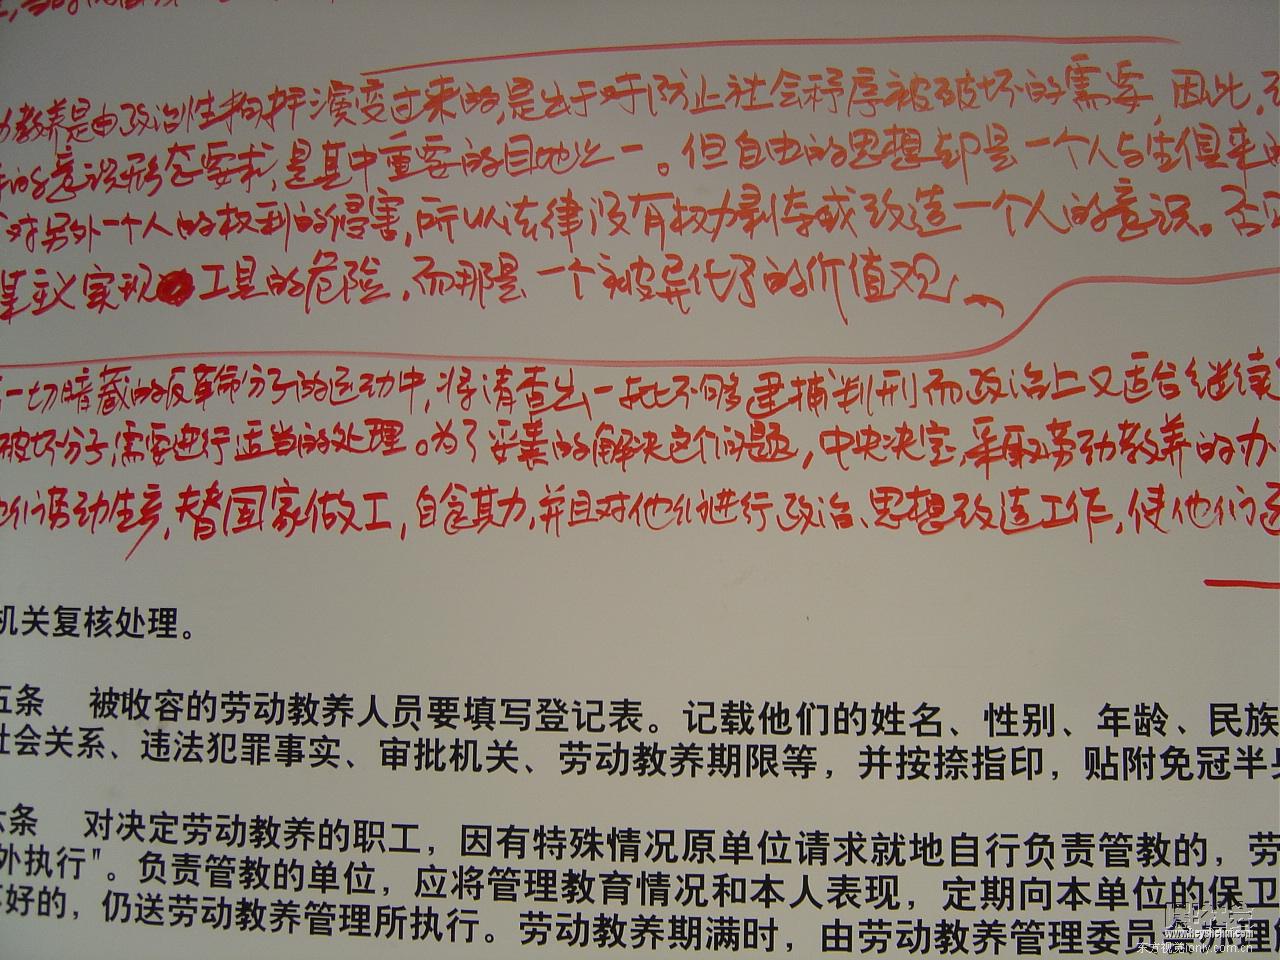 教养是由政治性拘押演变过来的,是出于对防止社会秩序被破坏的需要,因此,
的意识形态要求,是其中重要的目地之一。但自由的思想却是一个人与生俱来
对另外一个人的权利的侵害,所以法律没有权力剥夺或改造一个人的意识。否
某主义实现工具的危险,而那是一个被异化了的价值观。
一切暗藏的反革命分子的运动中,将清查出一批不够逮捕判刑而政治上又适合继续
破坏分子,需要进行适当的处理。为了妥善的解决这个问题,中央决定,采取劳动教养的办
他们劳动生产,替国家做工,自食其力,并且对他们进行政治、思想改造工作,使他们
机关复核处理。
五条 被收容的劳动教养人员要填写登记表。记载他们的姓名、性别、年龄、民族
社会关系、违法犯罪事实、审批机关、劳动教养期限等，并按捺指印，贴附免冠半
六条 对决定劳动教养的职工，因有特殊情况原单位请求就地自行负责管教的，劳
外执行"。负责管教的单位，应将管理教育情况和本人表现，定期向本单位的保卫
好的，仍送劳动教养管理所执行。劳动教养期满时，由劳动教养管理委员
东方视界ionly.com.cn